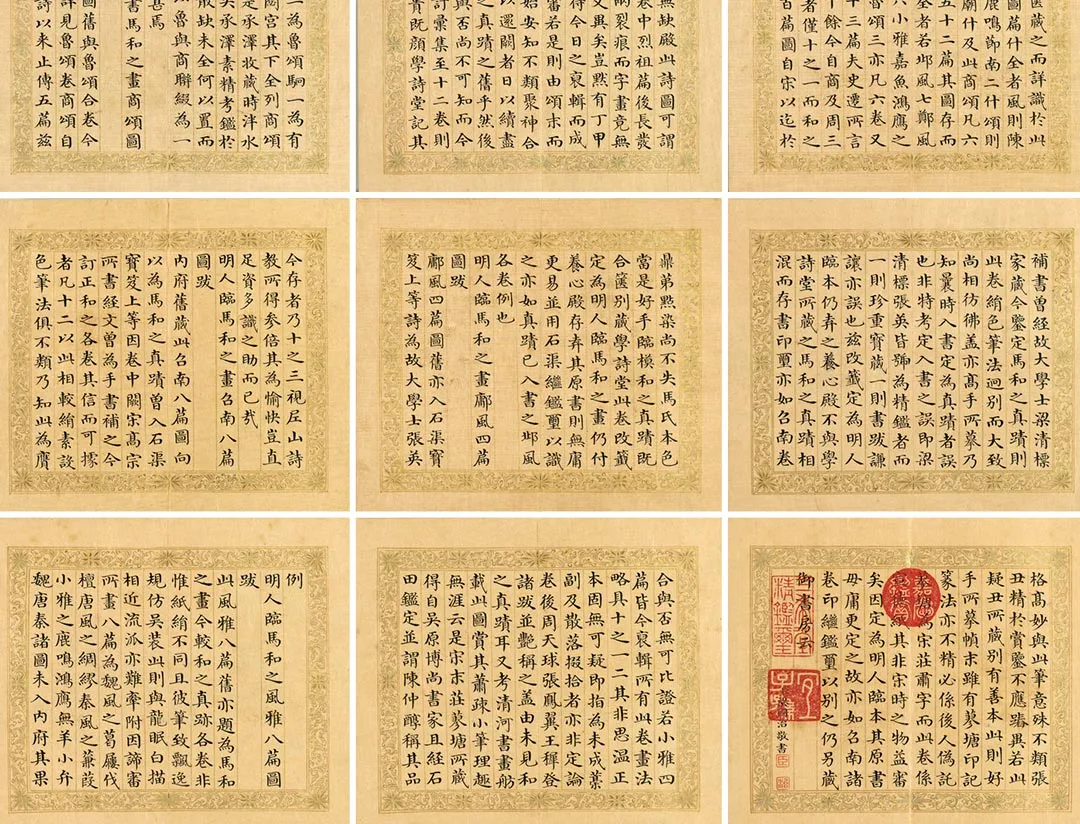 一為魯頌駉一為有
閟宮其下全列商頌
是承澤收藏時泮水
矣承澤素精考鑑於
散缺未全何以置而
以魯與商聯綴為一
甚焉
書馬和之畫商頌圖
圖舊與魯頌合卷今
詳見魯頌卷商頌自
詩以来止傳五篇兹
無缺殿此詩圖可謂
卷中烈祖篇後長發
兩裂痕而字畫竟無
文異矣豈黙有丁甲
待今日之裒輯而成
審若是則由頌末而
始安知不類聚神合
以還闕者日以續盡
之真蹟之舊乎然後
與否尚不可知而今
訂彙集至十二卷則
貴既顏學詩堂記其
藏之而詳識於此
圖篇什全者風則陳
鹿鳴節南二什頌則
廟什及此商頌凡六
五十二篇其圖存而
全者若邶風七鄭風
六小雅嘉魚鴻鴈之
魯頌三亦凡六卷又
十三篇夫史遷所言
十餘今自商及周三
者僅十之一而和之
百篇圖自宋以迄於
今存者乃十之三視屋山詩
教所得參倍其為愉快豈直
足資多識之助而已㢤
明人臨馬和之畫召南八篇
圖跋
内府舊藏此召南八篇圖向
以為馬和之真蹟曾入石渠
寶笈上等因卷中闕宋高宗
所書經文曾為手書補之今
訂正和之各卷其信而可據
者凡十二以此相較絹素設
色筆法俱不類乃知此為贋
鼎弟㸃染尚不失馬氏本色
當是好手臨模和之真蹟既
合匧别藏學詩堂此卷改籤
定為明人臨馬和之畫仍付
養心殿存弆其原書則無庸
更易並用石渠繼鑑璽以識
之亦如真蹟已入書之邶風
各卷例也
明人臨馬和之畫鄘風四篇
圖跋
鄘風四篇圖舊亦入石渠寶
笈上等詩為故大學士張英
補書曾經故大學士梁清標
家藏今鑒定馬和之真蹟則
此卷絹色筆法迥别而大致
尚相彷彿蓋亦高手所摹乃
知曩時入書定為真蹟者誤
也非特考定入書之誤即梁
清標張英皆號為精鑑者而
一則珍重寶藏一則書跋謙
讓亦誤也兹改籤定為明人
臨本仍弆之養心殿不與學
詩堂所藏之馬和之真蹟相
混而存書印璽亦如召南卷
例
明人臨馬和之風雅八篇圖
跋
此風雅八篇舊亦題為馬和
之畫今較和之真跡各卷非
惟紙絹不同且彼筆致飄逸
規仿吳裝此則與龍眠白描
相近流派亦難牽附因諦審
所畫八篇為魏風之葛屨伐
檀唐風之綢繆秦風之蒹葭
小雅之鹿鳴鴻鴈無羊小弁
魏唐秦諸圖未入内府其果
合與否無可比證若小雅四
篇皆今裒輯所有此卷畫法
略具十之一二其非思温正
本固無可疑即指為未成藁
副及散落掇拾者亦非定論
卷後周天球張鳳翼王穉登
諸跋並艷稱之盖由未見和
之真蹟耳又考清河書畫舫
載此圖賞其蕭疎小筆理趣
無涯云是宋末莊蓼塘所藏
得自吳原博尚書家且經石
田鑑定並謂陳仲醇稱其品
格髙妙與此筆意殊不類張
丑精於賞鑒不應踳異若此
疑丑所藏别有善本此則好
手所摹幀末雖有蓼塘印記
篆法亦不精必係後人偽託
為宋莊肅字而此卷係
其非宋時之物益審
矣因定為明人臨本其原書
毋庸更定之故亦如召南諸
卷印繼鑑璽以别之仍另藏
御書房云
敬書